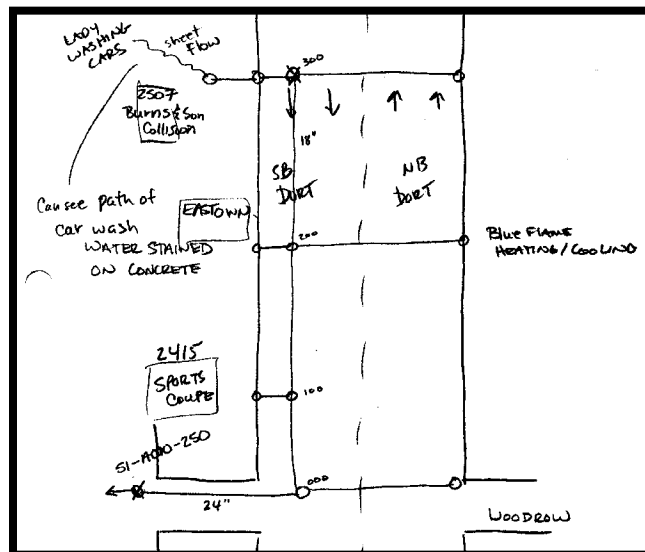 LADY
WASHING
CARS
sheet
Flow
300
2507
Burns & Son
Collision
18"
SB
DORT
NB
DORT
Can see path of
car wash
WATER STAINED
ON CONCRETE
EASTOWN
200
Blue FLAME
HEATING/COOLING
2415
SPORTS
COUPE
100
000
24"
WOODROW